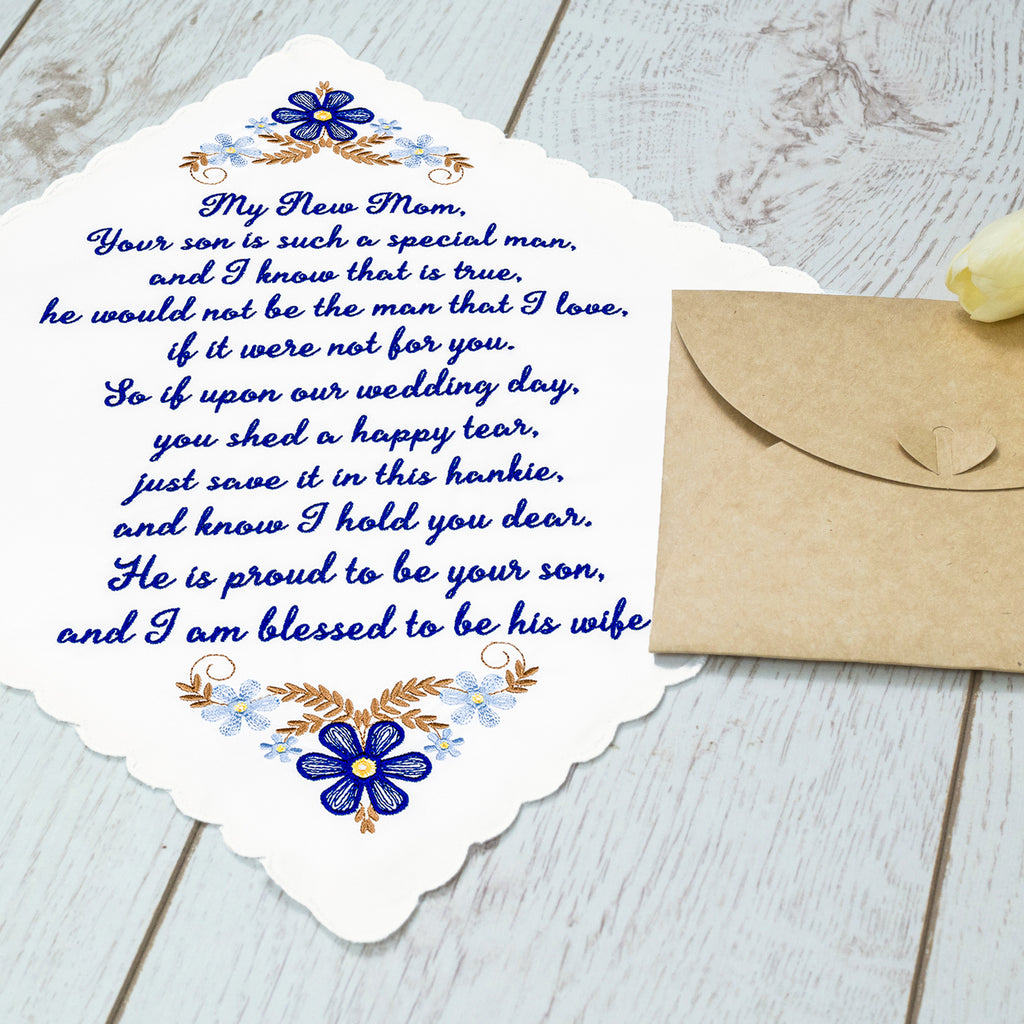 My New Mom,
Your son is such a special man,
and I know that is true,
he would not be the man that I love,
if it were not for you.
So if upon our wedding day,
you shed a happy tear,
just save it in this hankie,
and know I hold you dear.
He is proud to be your son,
and I am blessed to be his wife